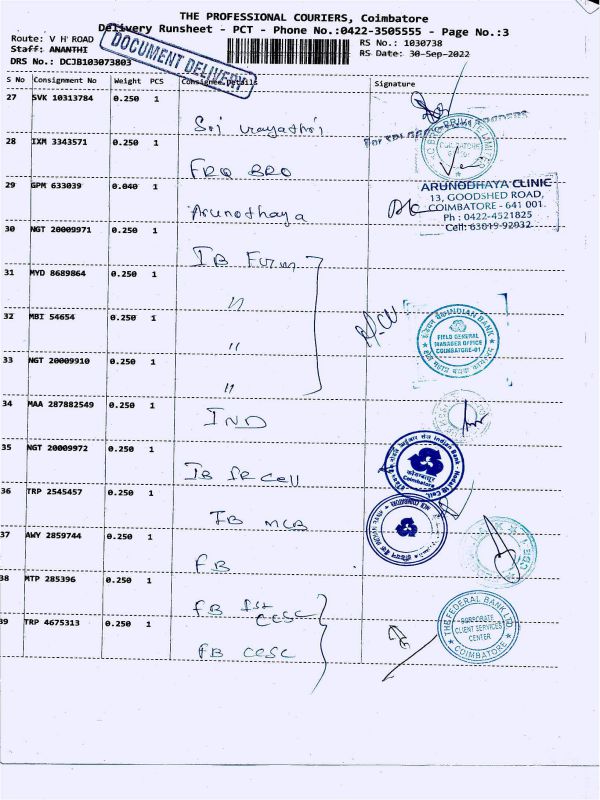 THE PROFESSIONAL COURIERS, Coimbatore
Delivery Runsheet - PCT - Phone No.:0422-3505555 - Page No.:3
Route: V H ROAD
Staff: ANANTHI
DRS No.: DCJB103073803
DOCUMENT DELIVERY
RS No.: 1030738
RS Date: 30-Sep-2022
S No Consignment No Weight PCS Consignee Details Signature
27 SVK 10313784 0.250 1 Sri
28 IXM 3343571 0.250 1 FRQ BRO
COIMBATORE
29 GPM 633039 0.040 1 Arunothaya
ARUNODHAYA CLINIC
13, GOODSHED ROAD,
COIMBATORE - 641 001.
Ph : 0422-4521825
Cell: 63019-92932
30 NGT 20009971 0.250 1 IB Furm
31 MYD 8689864 0.250 1 "
32 MBI 54654 0.250 1 "
INDIAN BANK
FIELD GENERAL
MANAGER OFFICE
COIMBATORE-01
33 NGT 20009910 0.250 1 "
34 MAA 287882549 0.250 1 IND
35 NGT 20009972 0.250 1 IB SR Cell
Indian Bank
कोयम्बत्तूर
Coimbatore
36 TRP 2545457 0.250 1 IB MCB
37 AWY 2859744 0.250 1 FB
38 MTP 285396 0.250 1 FB CCSC
39 TRP 4675313 0.250 1 FB CCSC
THE FEDERAL BANK LTD
CORPORATE
CLIENT SERVICES
CENTER
COIMBATORE